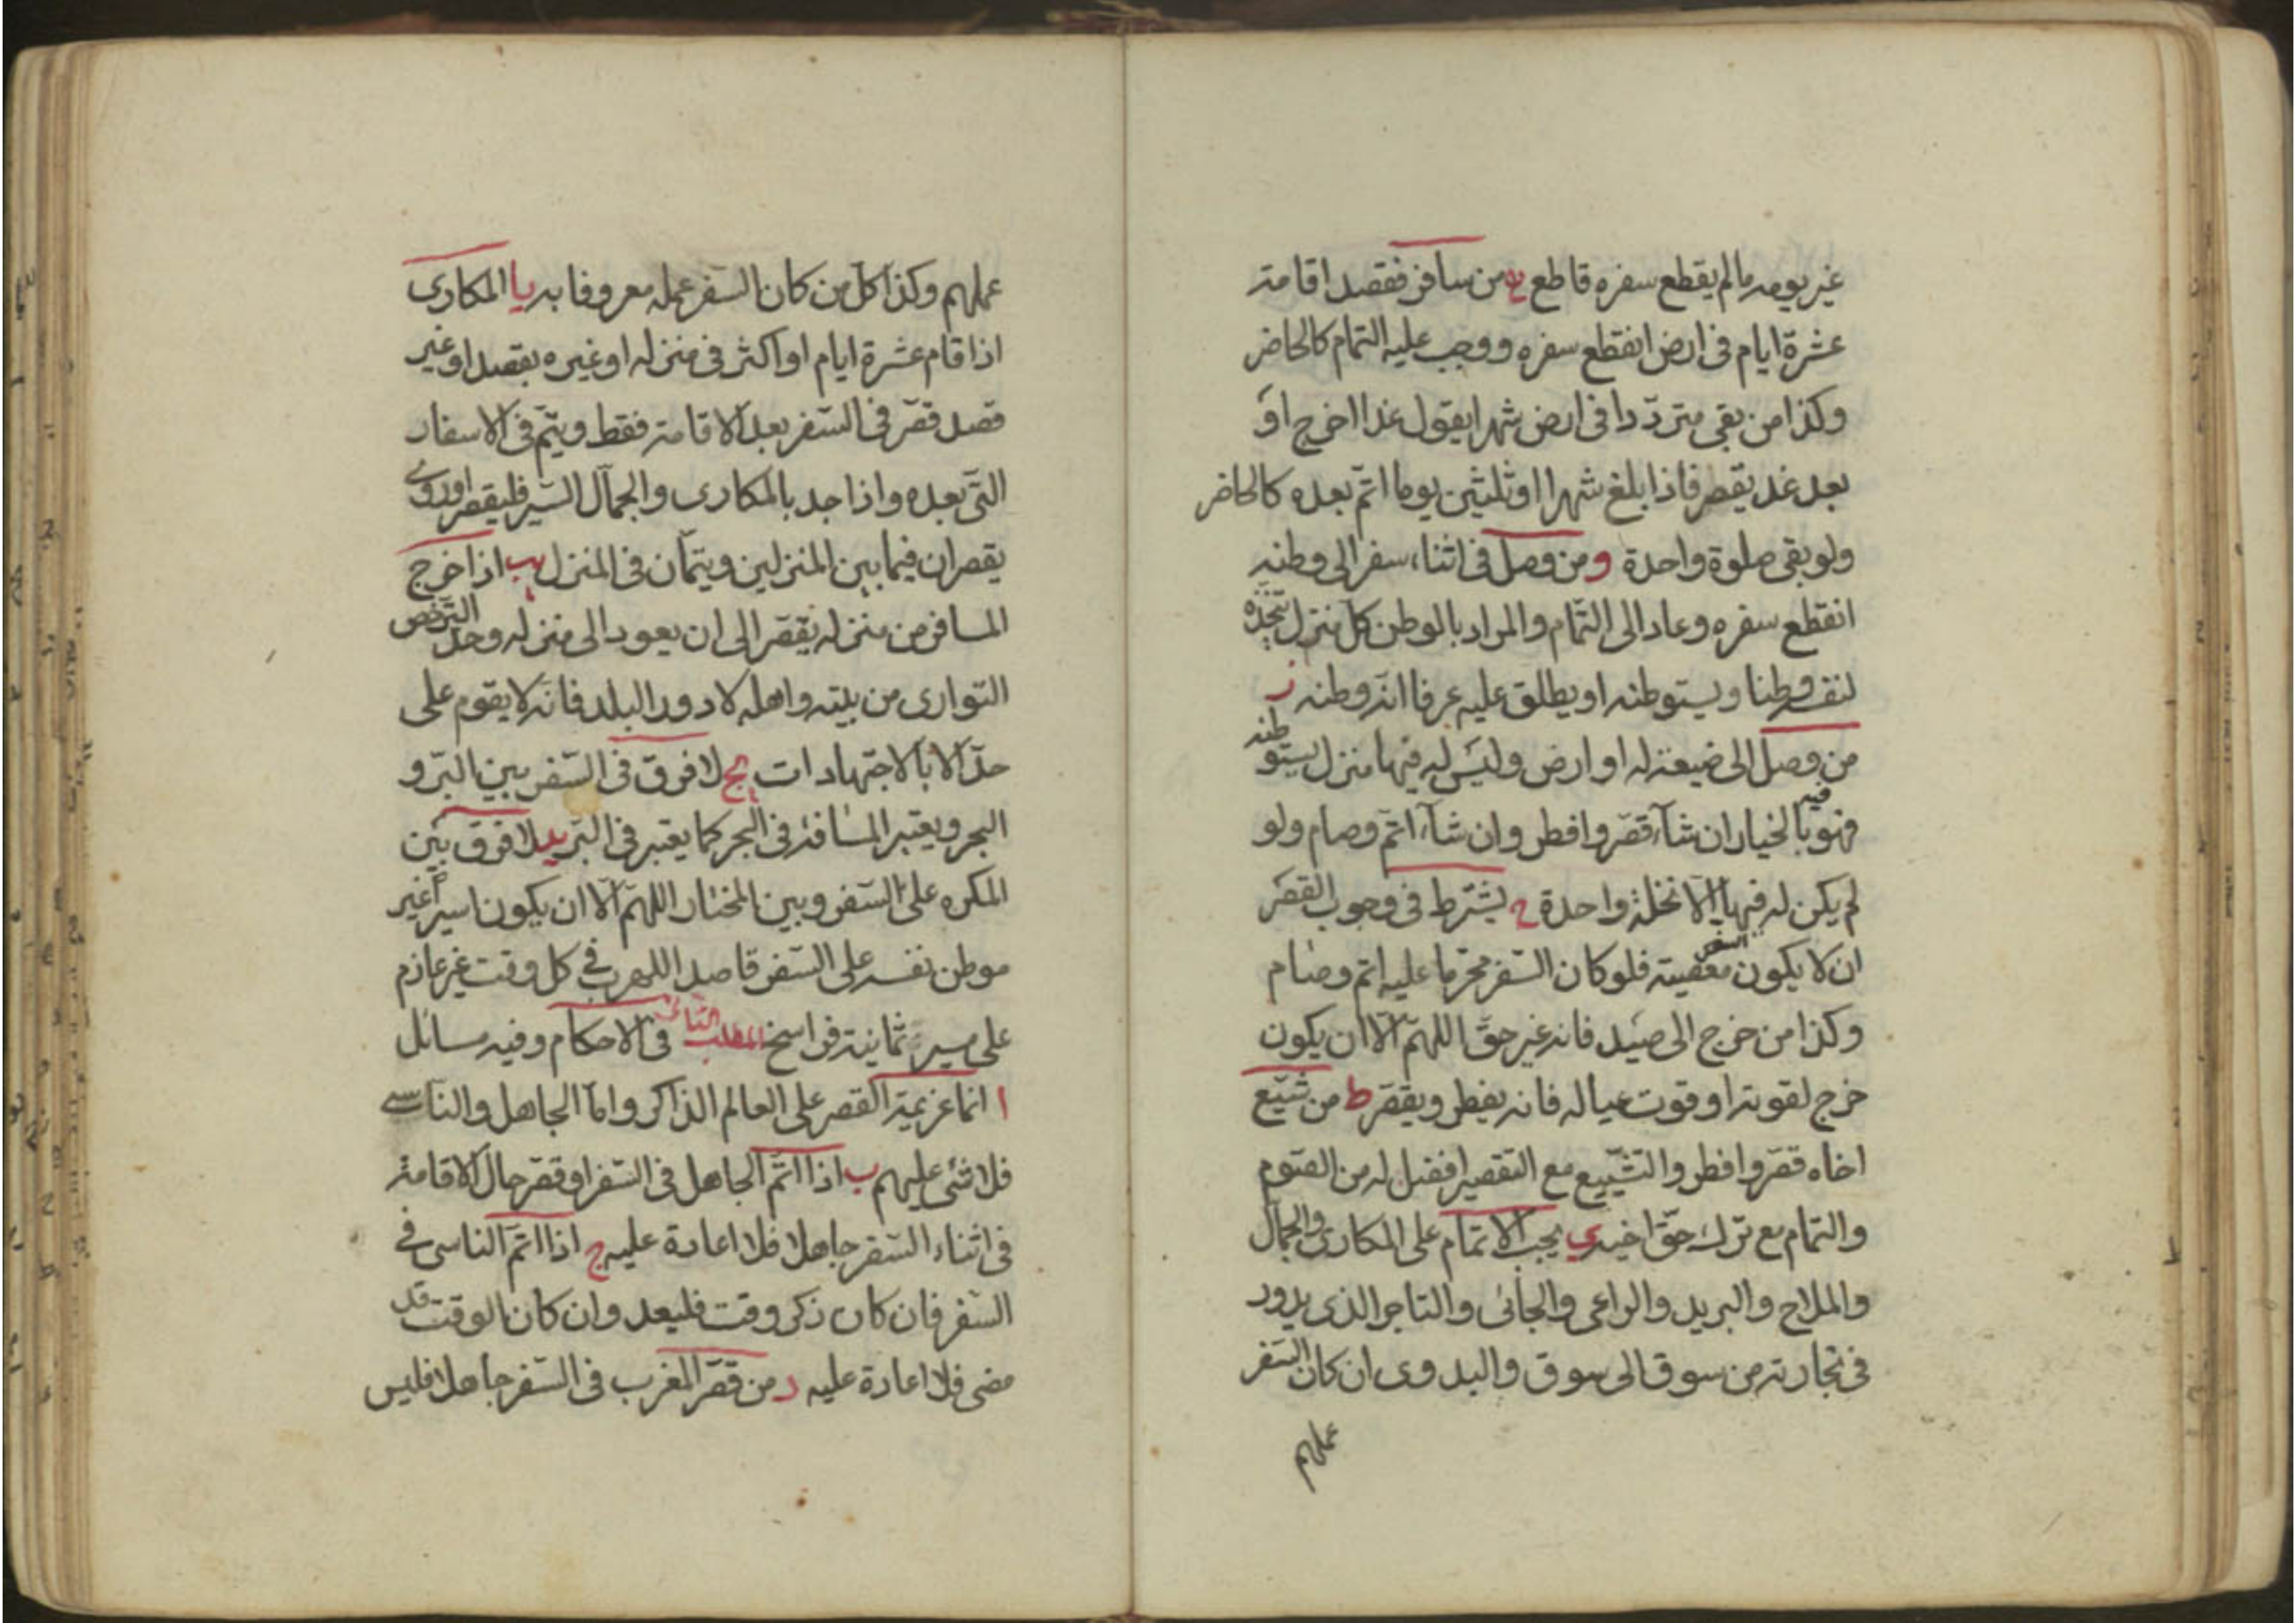 غير يومه مالم يقطع سفره قاطع ه من سافر فقصد اقامة
عشرة ايام فى ارض انقطع سفره ووجب عليه التمام كالحاضر
وكذا من بقى متردّدا فى ارض شهرا يقول غدا اخرج او
بعد غد يقصر فاذا بلغ شهرا او ثلثين يوما اتمّ بعده كالحاضر
ولو بقى صلوة واحدة و من وصل فى اثناء سفر الى وطنه
انقطع سفره وعاد الى التّمام والمراد بالوطن كل منزل يتخذه
لنفسه وطنا ويستوطنه او يطلق عليه عرفا انه وطنه ز
من وصل الى ضيعة له او ارض وليس له فيها منزل يستوطنه
فيه فهو بالخيار ان شآء قصّر وافطر وان شآء اتمّ وصام ولو
لم يكن له فيها الّا نخلة واحدة ح يشترط فى وجوب القصر
ان لا يكون السفر معصية فلو كان السّفر محرّما عليه اتم وصام
وكذا من خرج الى صيد فانه غير حقّ اللهمّ الّا ان يكون
خرج لقوته او قوت عياله فانه يفطر ويقصّر ط من شيّع
اخاه قصّر وافطر والتّشييع مع التقصير افضل له من الصّوم
والتمام مع ترك حقّ اخيه ى يجب الاتمام على المكارى والجمّال
والملاح والبريد والراعى والجانى والتاجر الذى يدور
فى تجارته من سوق الى سوق والبدوى ان كان السّفر
عملهم
عملهم وكذا كل من كان السّفر عمله معروفا به يا المكارى
اذا قام عشرة ايام او اكثر فى منزله او غيره بقصد او غير
قصد قصّر فى السّفر بعد الاقامة فقط ويتمّ فى الاسفار
التّى بعده واذا جد بالمكارى والجمّال السّير فليقصر او روى
يقصران فيما بين المنزلين ويتمّان فى المنزل يب اذا خرج
المسافر من منزله يقصّر الى ان يعود الى منزله وحدّ الترخص
التّوارى من بيته واهله لا دور البلد فانه لا يقوم على
حدّ الّا بالاجتهادات يج لا فرق فى السّفر بين البرّ و
البحر ويعتبر المسافة فى البحر كما يعتبر فى البرّ يد لا فرق بين
المكره على السّفر وبين المختار اللهمّ الّا ان يكون اسيرا غير
موطن نفسه على السّفر قاصدا للهرب فى كل وقت غير عازم
على مسير ثمانية فراسخ المطلب الثانى فى الاحكام وفيه مسائل
ا انما عزيمة القصر على العالم الذاكر وامّا الجاهل والناسى
فلا شئ عليهم ب اذا اتمّ الجاهل فى السّفر او قصّر حال الاقامة
فى اثناء السّفر جاهلا فلا اعادة عليه ج اذا اتمّ الناسى فى
السّفر فان كان ذكر وقت فليعد وان كان الوقت قد
مضى فلا اعادة عليه د من قصّر المغرب فى السّفر جاهلا فليس